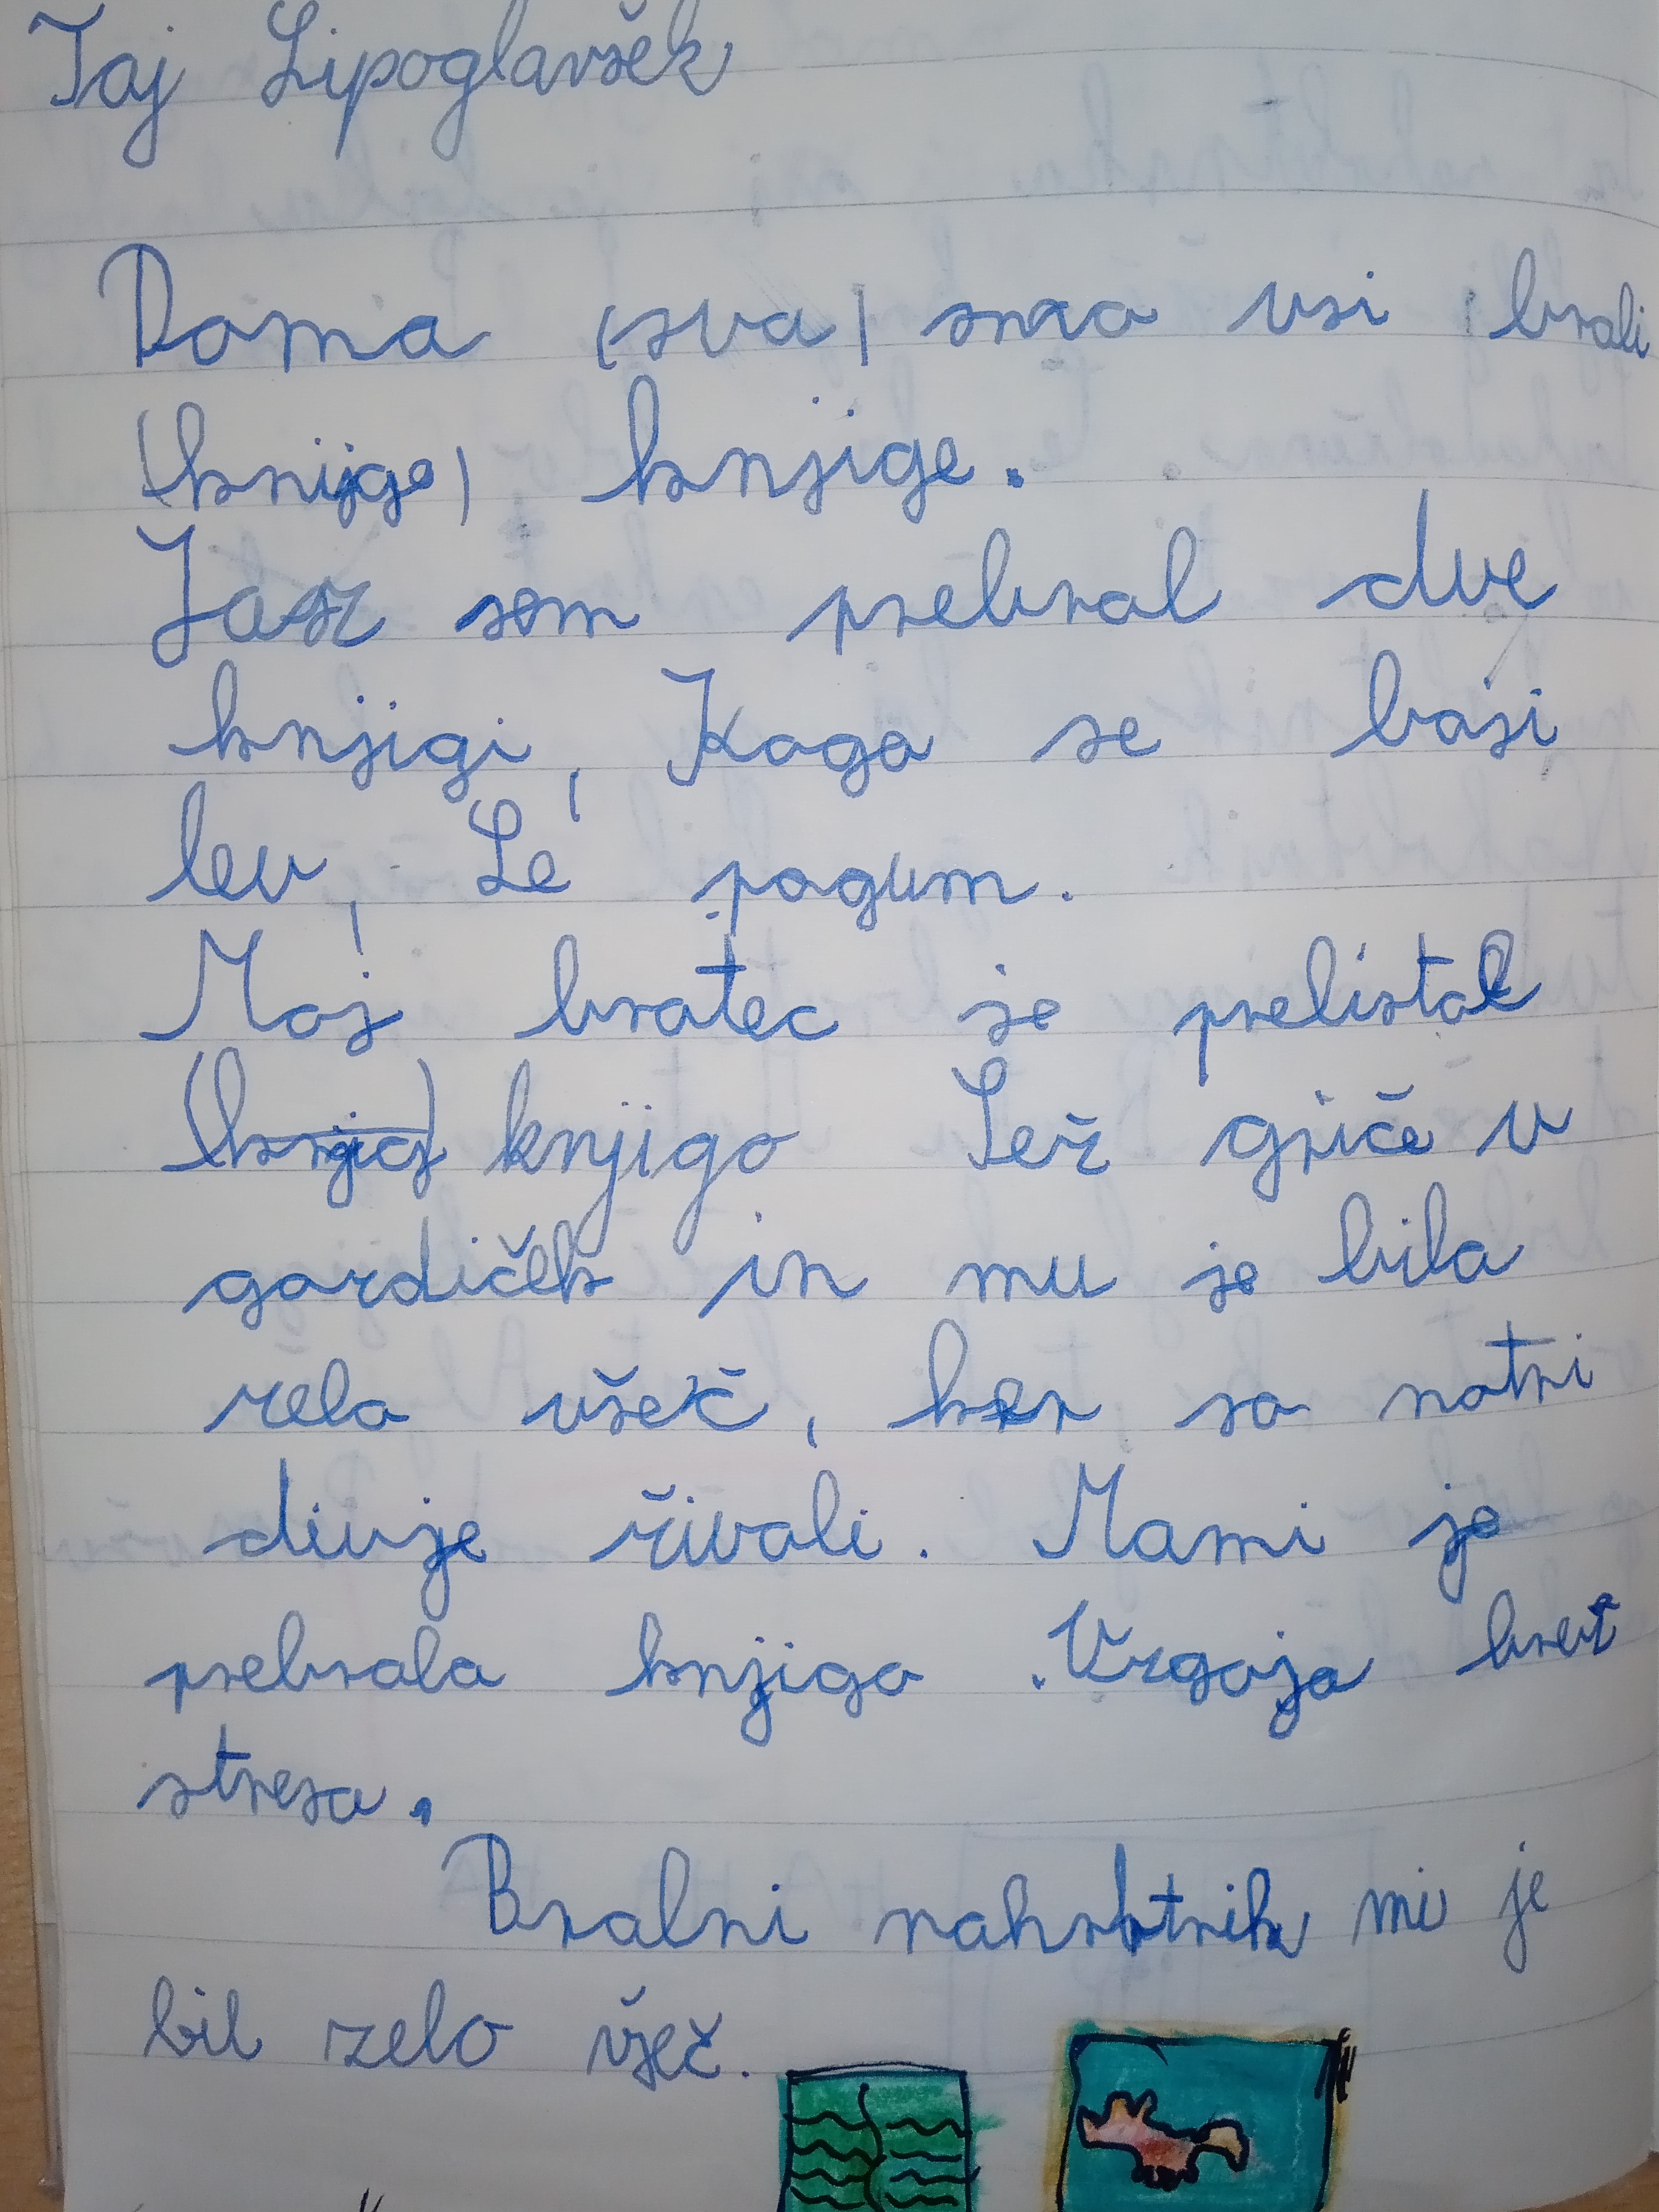 Taj Lipoglavšek
Doma (sva) smo vsi brali
(knjigo) knjige.
Jaz sem prebral dve
knjigi, Koga se boji
lev, Le pogum.
Moj bratec je prelistal
knjigo Jež griče v
gozdiček in mu je bila
zelo všeč, ker so notri
divje živali. Mami je
prebrala knjigo Vzgoja brez
stresa.
Bralni nahrbtnik mi je
bil zelo všeč.